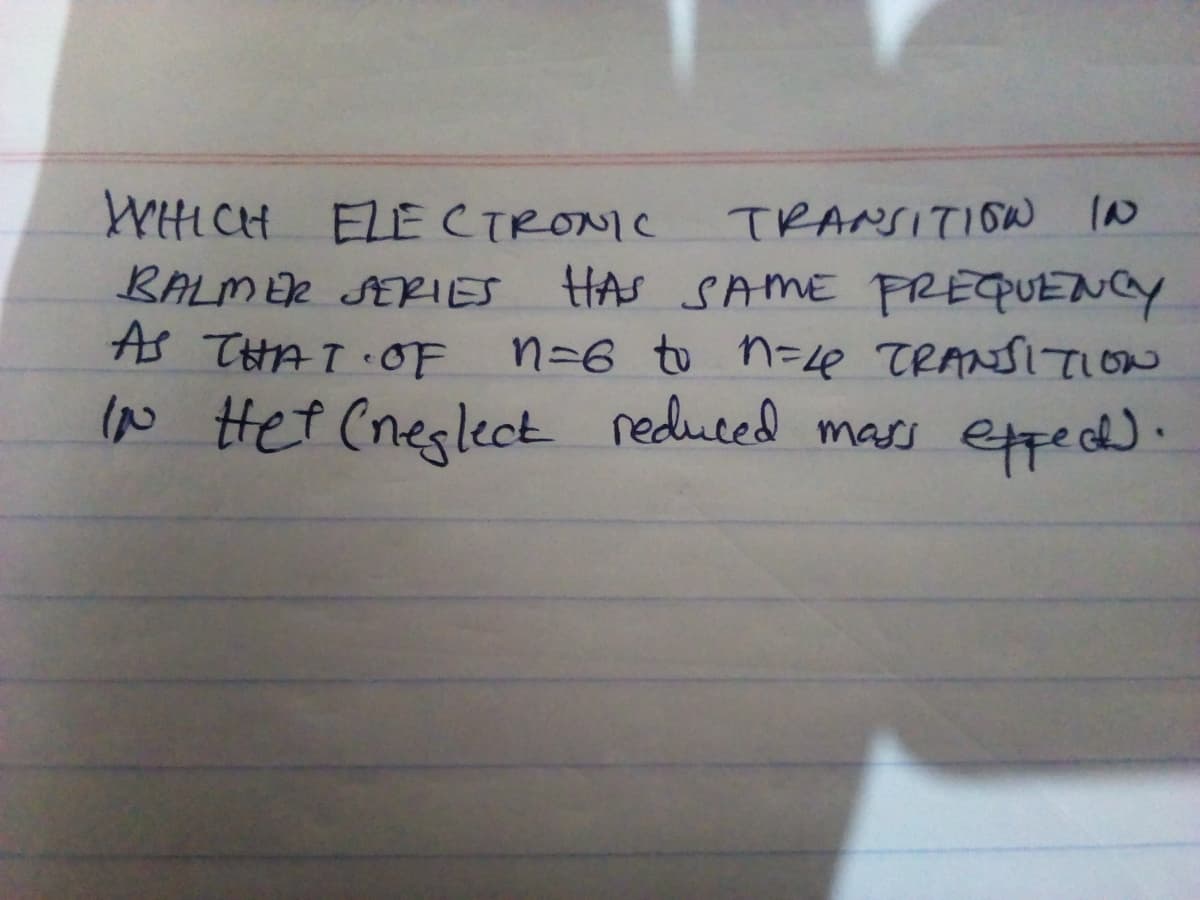 WHICH ELECTRONIC TRANSITION IN
BALMER SERIES HAS SAME FREQUENCY
AS THAT OF n=6 to n=4 TRANSITION
IN He+ (neglect reduced mass effect).